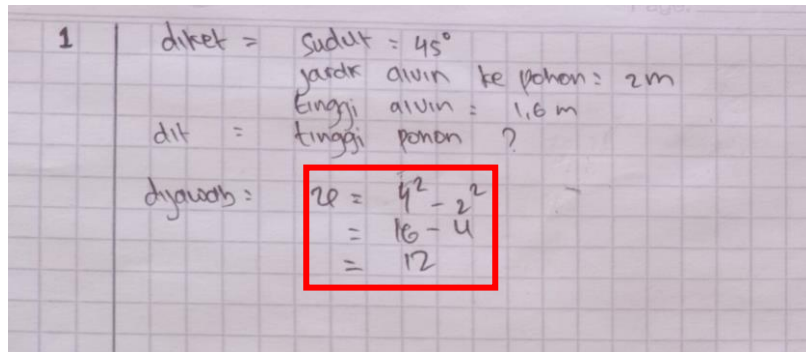 1 diket = sudut = 45°
jarak alvin ke pohon = 2m
tinggi alvin = 1,6 m
dit = tinggi pohon ?
dijawab = x = 4² - 2²
= 16 - 4
= 12